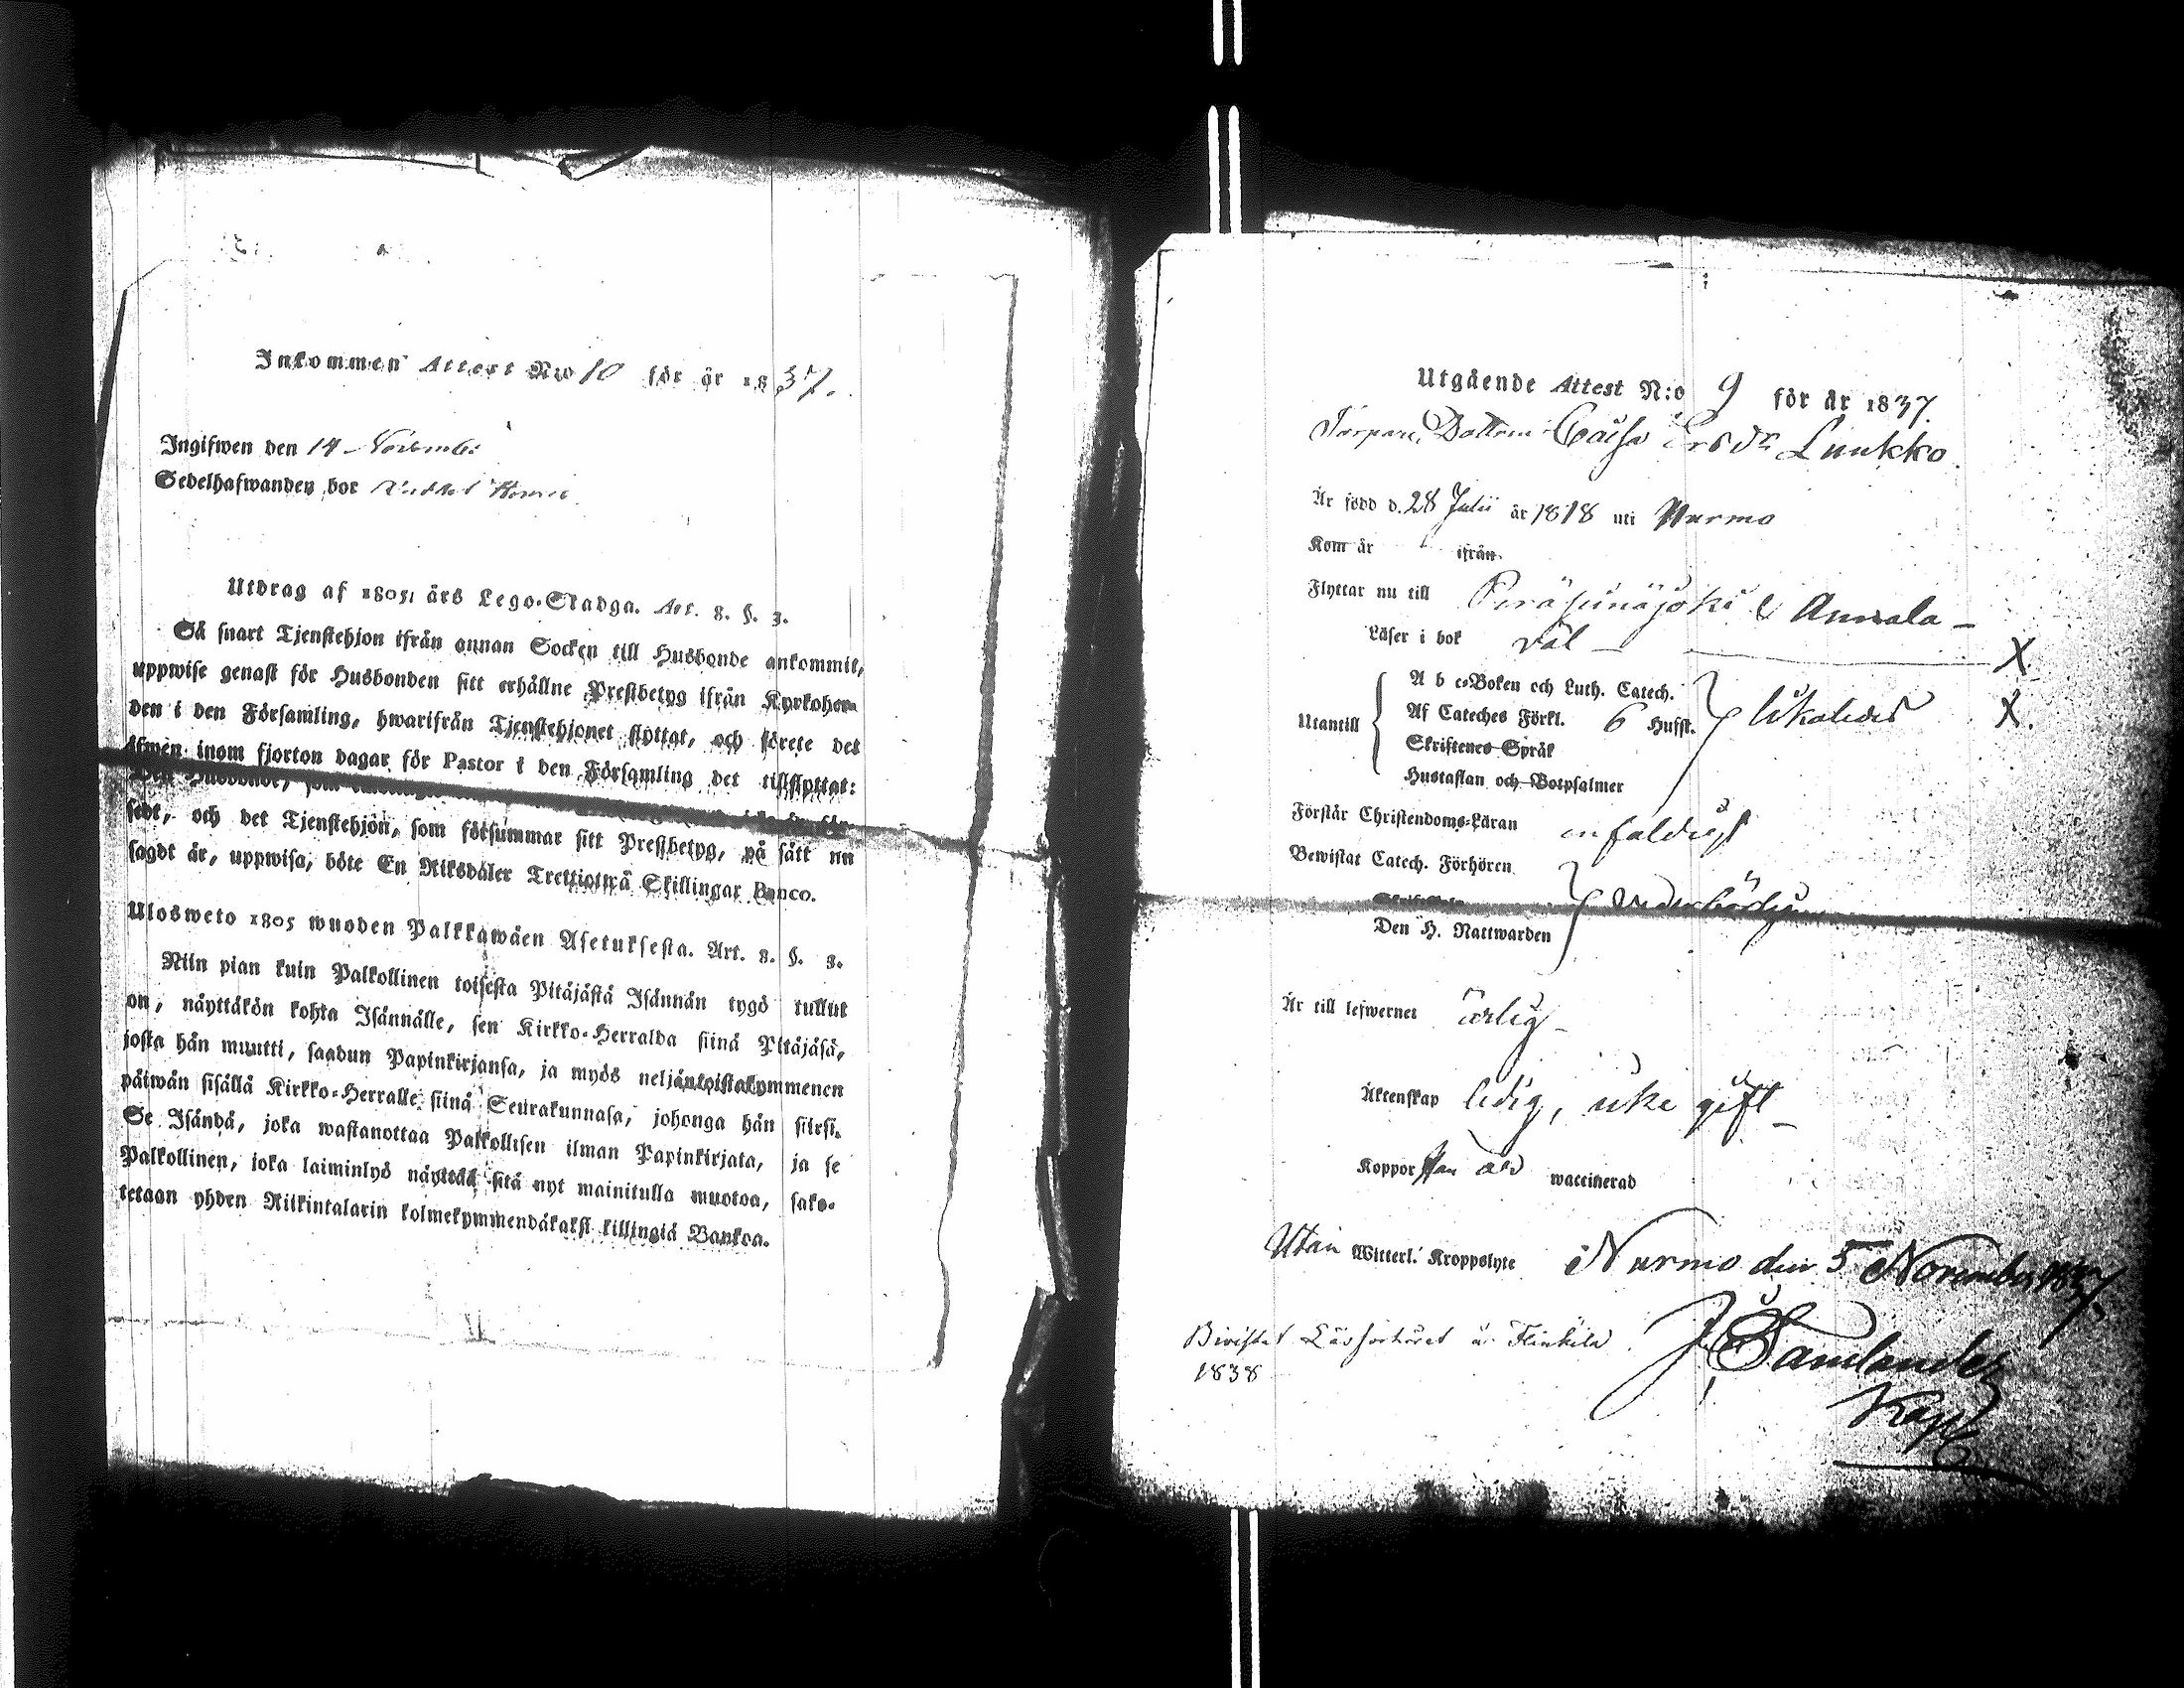 Inkommen Attest N:o 10 för år 1837.
Ingifwen den 14 November
Sedelhafwanden bor
Utdrag af 1805 års Lego-Stadga. Art. 8. §. 3.
Så snart Tjenstehjon ifrån annan Socken till Husbonde ankommit,
uppwise genast för Husbonden sitt erhållne Prestbetyg ifrån Kyrkoher-
den i den Församling, hwarifrån Tjenstehjonet flyttat, och förete det
äfwen inom fjorton dagar för Pastor i den Församling det tillflyttat:
Den Husbonde, som
sedt, och det Tjenstehjon, som försummar sitt Prestbetyg, på sätt nu
sagdt är, uppwisa, böte En Riksdaler Trettiotwå Skillingar Banco.
Ulosweto 1805 wuoden Palkkawäen Asetuksesta. Art. 8. §. 3.
Niin pian kuin Palkollinen toisesta Pitäjästä Isännän tygö tullut
on, näyttäkön kohta Isännälle, sen Kirkko-Herralda siinä Pitäjäsä,
josta hän muutti, saadun Papinkirjansa, ja myös neljäntoistakymmenen
päiwän sisällä Kirkko-Herralle siinä Seurakunnasa, johonga hän siirsi.
Se Isändä, joka wastanottaa Palkollisen ilman Papinkirjata, ja se
Palkollinen, joka laiminlyö näyttää sitä nyt mainitulla muotoa, sako-
tetaan yhden Riikintalarin kolmekymmendäkaksi killingiä Bankoa.
Utgående Attest N:o 9 för år 1837.
Torpare Dottern Caisa Ersdr Luukko
Är född d. 28 Julii år 1818 uti Nurmo
Kom år ifrån
Flyttar nu till Peräseinäjoki & Annala
Läser i bok väl
Utantill
A b c-Boken och Luth. Catech.
Af Cateches Förkl. 6 Hufst. likaledes X.
Skriftenes Språk
Hustaflan och Botpsalmer
X.
Förstår Christendoms-Läran enfaldigt
Bewistat Catech. Förhören
Den H. Nattwarden
vederbörligen
Är till lefwernet ärlig
Äktenskap ledig, icke gift
Koppor waccinerad
Utan Witterl. Kroppslyte Nurmo den 5 November 1837
J. Samlander
Kapl
Bevistat Läsförhöret
1838